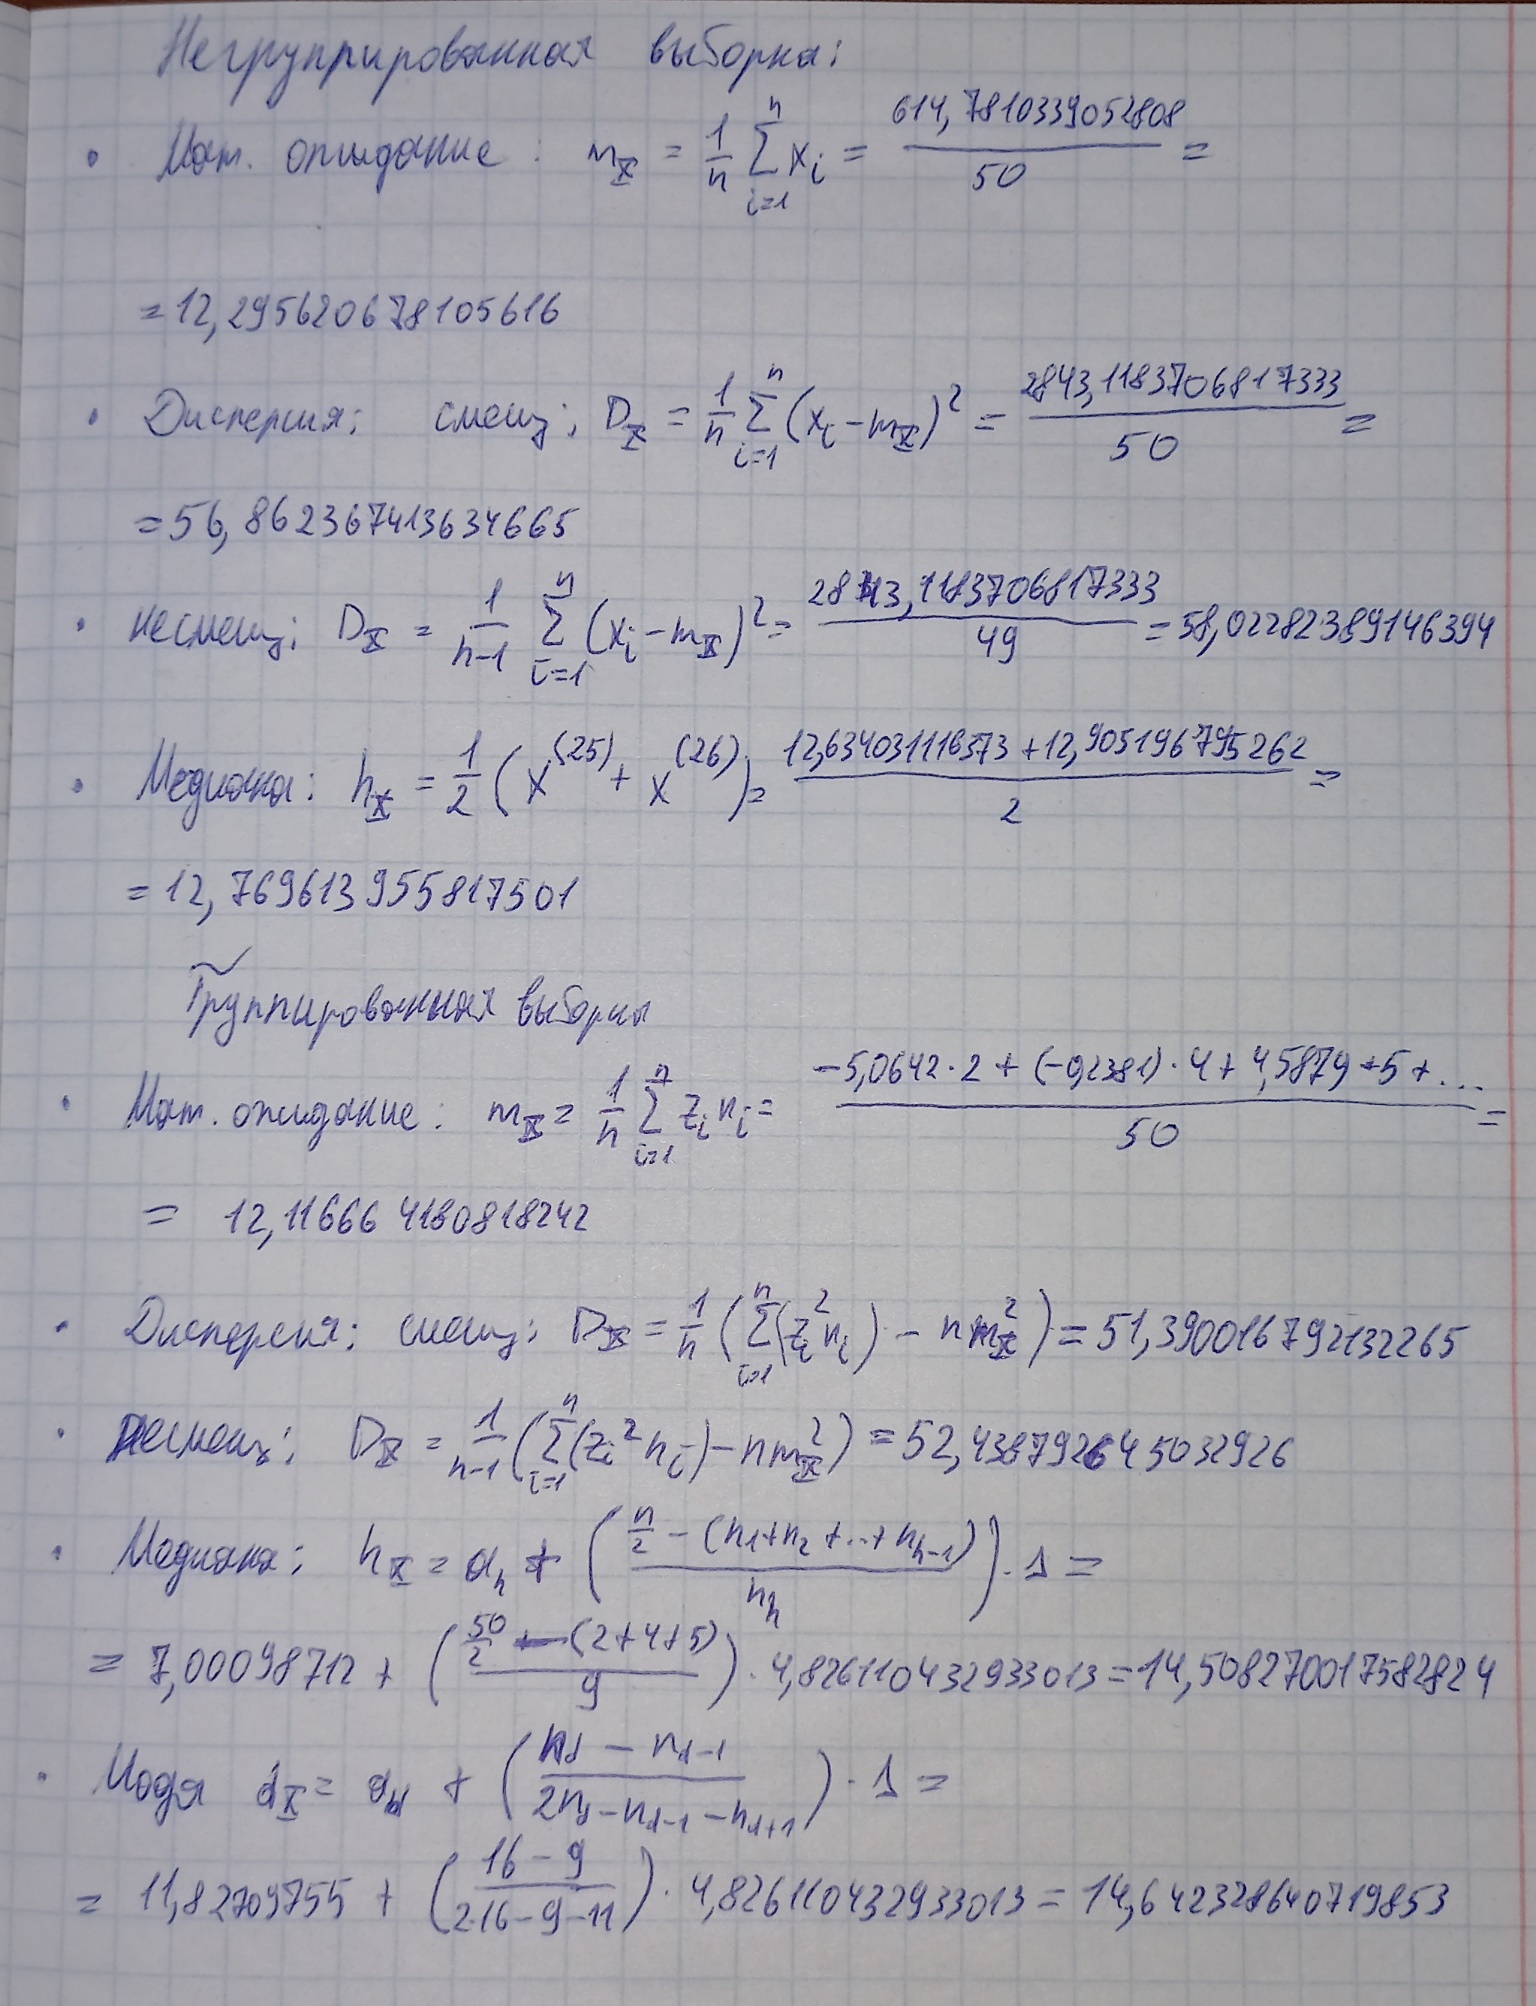 Негруппированная выборка:
Мат. ожидание: m_X = 1/n ∑_{i=1}^{n} x_i = 614,7810339052808/50 =
= 12,295620678105616
Дисперсия: смещ: D_X = 1/n ∑_{i=1}^{n} (x_i - m_X)^2 = 2843,1183706817333/50 =
= 56,862367413634665
несмещ: D_X = 1/(n-1) ∑_{i=1}^{n} (x_i - m_X)^2 = 2843,1183706817333/49 = 58,02282389146394
Медиана: h_X = 1/2 (x^(25) + x^(26)) = (12,634031116373 + 12,905196795262)/2 =
= 12,769613955817501
Группированная выборка
Мат. ожидание: m_X = 1/n ∑_{i=1}^{n} z_i n_i = (-5,0642·2 + (-0,2381)·4 + 4,5879·5 + ...)/50 =
= 12,116664180818242
Дисперсия: смещ: D_X = 1/n (∑_{i=1}^{n} (z_i^2 n_i) - n m_X^2) = 51,390016792132265
несмещ: D_X = 1/(n-1) (∑_{i=1}^{n} (z_i^2 n_i) - n m_X^2) = 52,438792645032926
Медиана: h_X = a_h + ((n/2 - (n_1+n_2+...+n_{h-1}))/n_h) · Δ =
= 7,00098712 + ((50/2 - (2+4+5))/9) · 4,826110432933013 = 14,508270017582824
Мода d_X = a_d + ((n_d - n_{d-1})/(2n_d - n_{d-1} - n_{d+1})) · Δ =
= 11,82709755 + ((16-9)/(2·16-9-11)) · 4,826110432933013 = 14,642328640719853